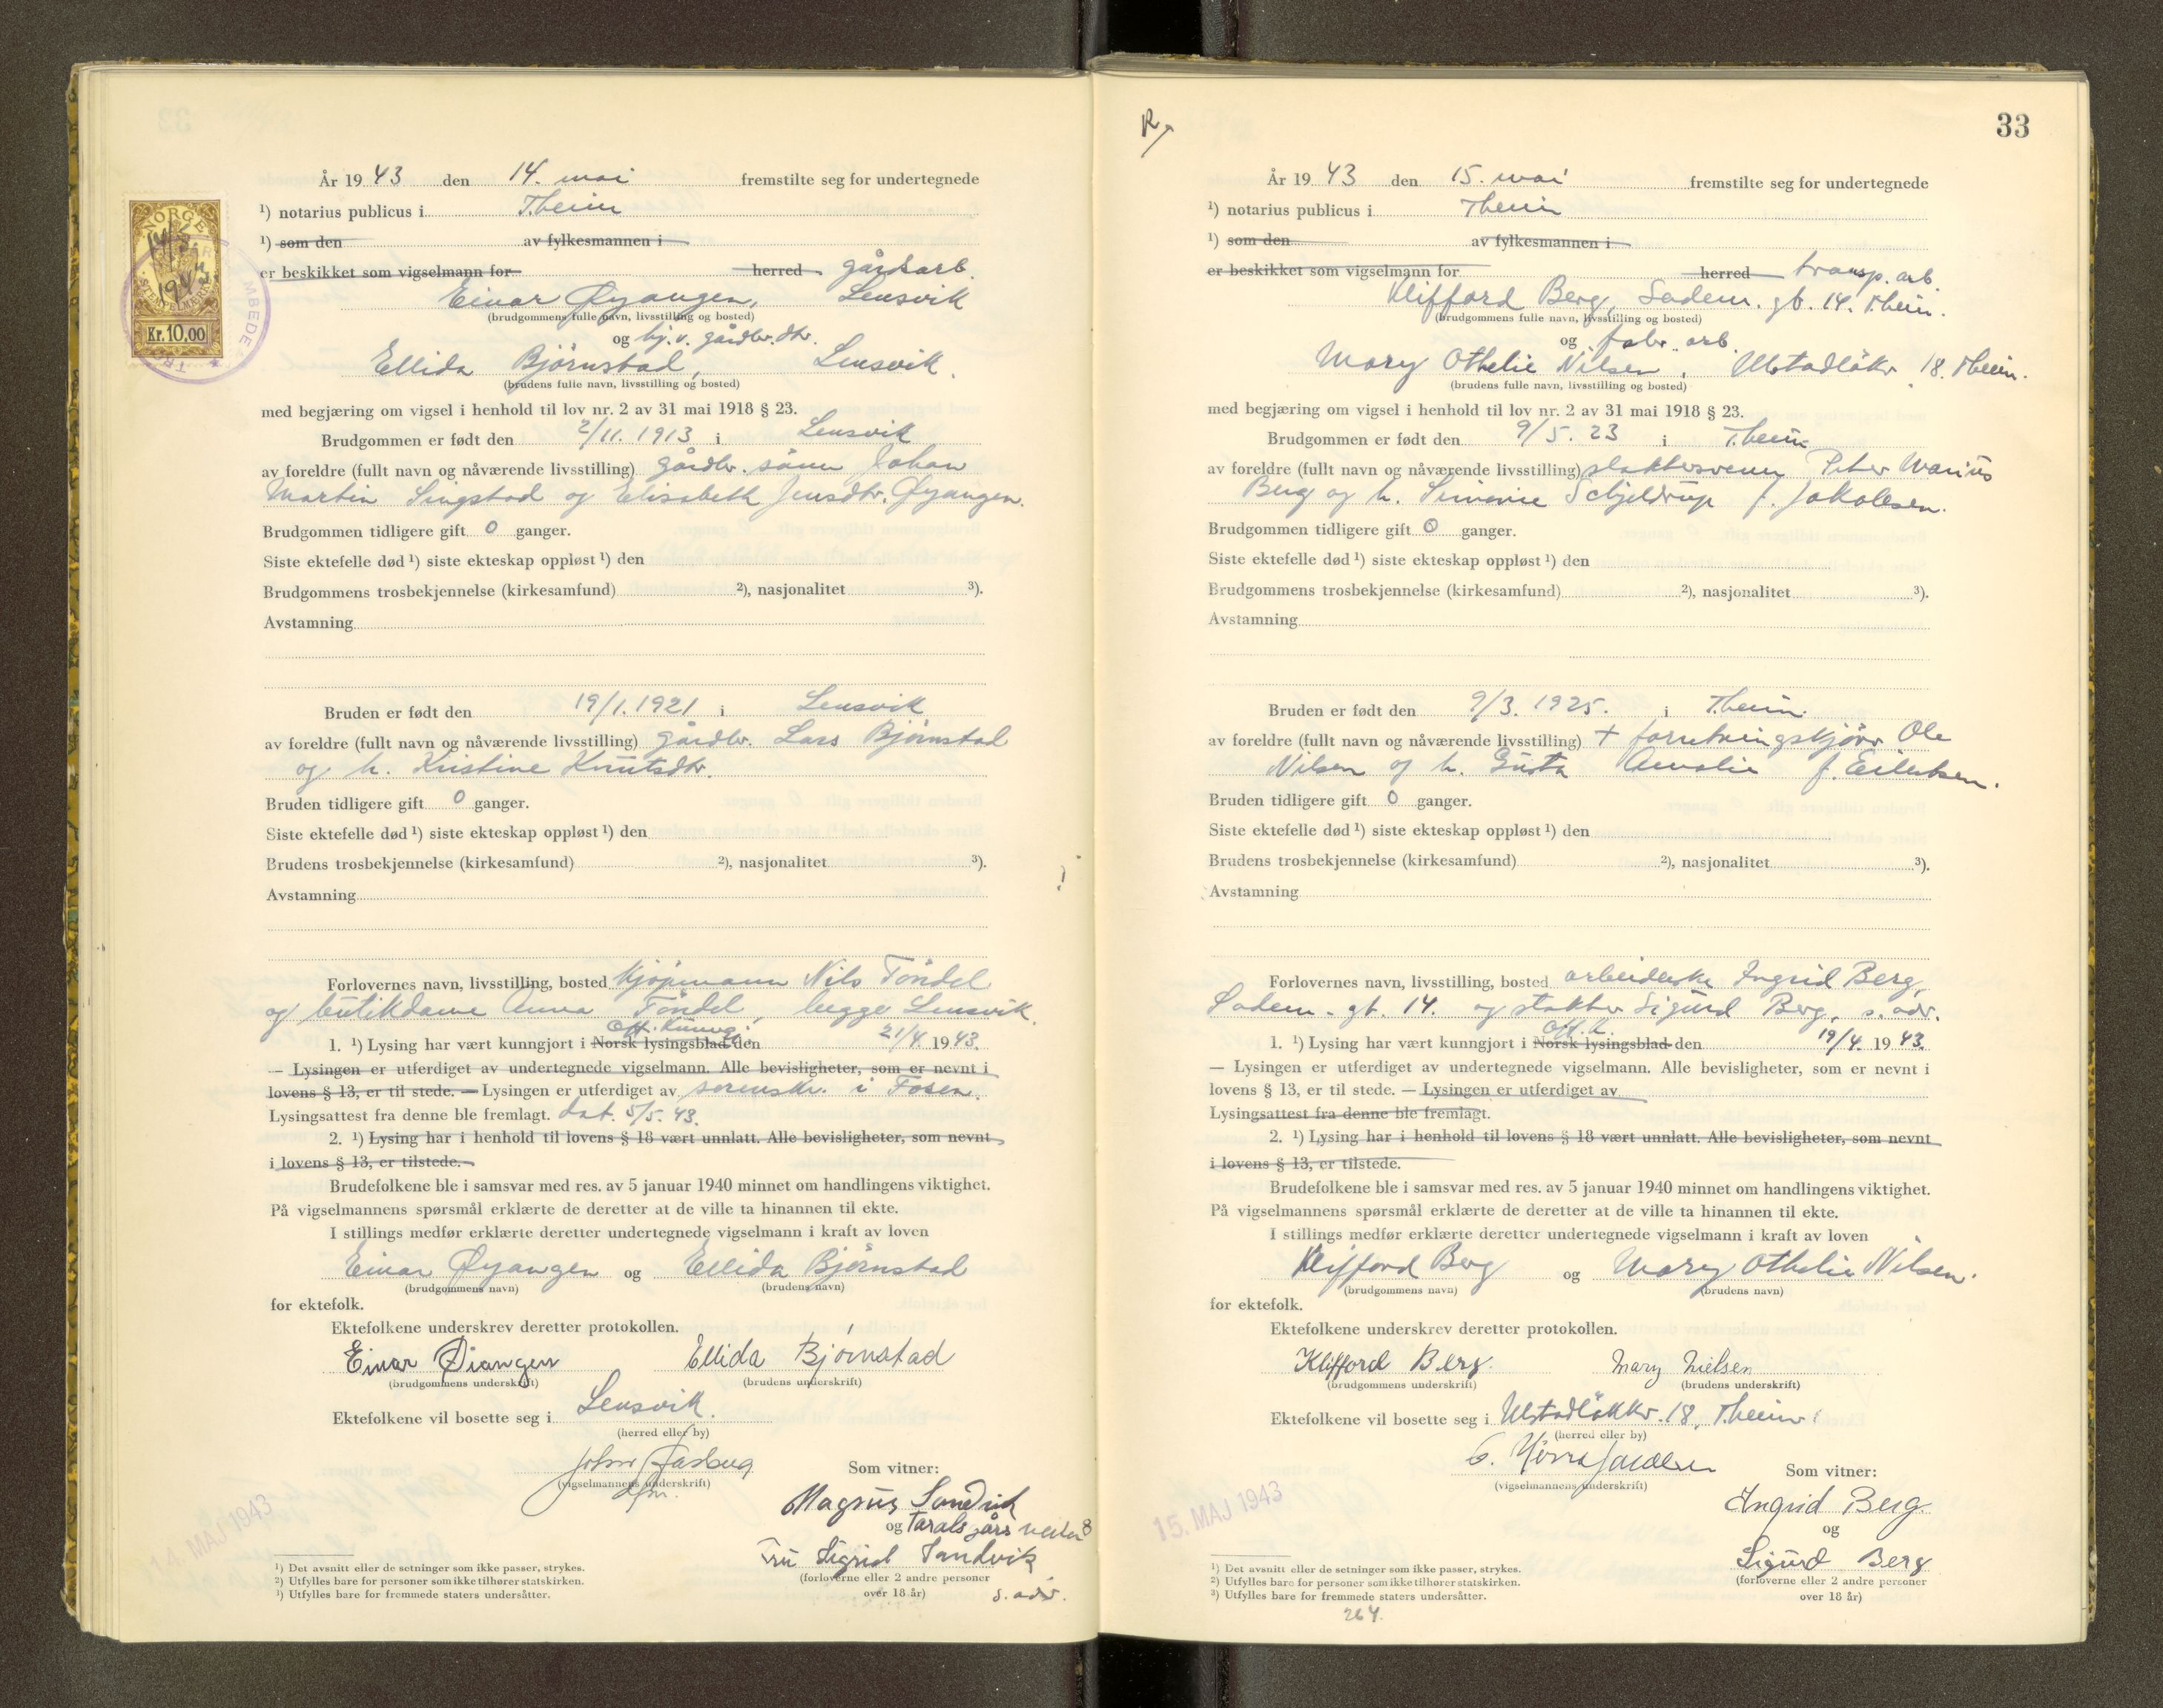 År 1943 den 14. mai fremstilte seg for undertegnede
¹) notarius publicus i T.heim
¹) som den av fylkesmannen i
er beskikket som vigselmann for herred gårdsarb.
Einar Øyangen, Lensvik
(brudgommens fulle navn, livsstilling og bosted)
og hj.v. gårdbr.dtr.
Ellida Björnstad, Lensvik.
(brudens fulle navn, livsstilling og bosted)
med begjæring om vigsel i henhold til lov nr. 2 av 31 mai 1918 § 23.
Brudgommen er født den 2/11. 1913 i Lensvik
av foreldre (fullt navn og nåværende livsstilling) gårdbr. sönn Johan
Martin Singstad og Elisabeth Jensdtr. Øyangen.
Brudgommen tidligere gift 0 ganger.
Siste ektefelle død ¹) siste ekteskap oppløst ¹) den
Brudgommens trosbekjennelse (kirkesamfund) ²), nasjonalitet ³).
Avstamning
Bruden er født den 19/1. 1921 i Lensvik
av foreldre (fullt navn og nåværende livsstilling) gårdbr. Lars Björnstad
og h. Kristine Knutsdtr.
Bruden tidligere gift 0 ganger.
Siste ektefelle død ¹) siste ekteskap oppløst ¹) den
Brudens trosbekjennelse (kirkesamfund) ²), nasjonalitet ³).
Avstamning
Forlovernes navn, livsstilling, bosted kjöpmann Nils Töndel
og butikdame Anna Töndel, begge Lensvik.
Off. kunng.
1. ¹) Lysing har vært kunngjort i Norsk lysingsblad den 21/4 1943.
— Lysingen er utferdiget av undertegnede vigselmann. Alle bevisligheter, som er nevnt i
lovens § 13, er til stede. — Lysingen er utferdiget av sorenskr. i Fosen.
Lysingsattest fra denne ble fremlagt. dat. 5/5. 43.
2. ¹) Lysing har i henhold til lovens § 18 vært unnlatt. Alle bevisligheter, som nevnt
i lovens § 13, er tilstede.
Brudefolkene ble i samsvar med res. av 5 januar 1940 minnet om handlingens viktighet.
På vigselmannens spørsmål erklærte de deretter at de ville ta hinannen til ekte.
I stillings medfør erklærte deretter undertegnede vigselmann i kraft av loven
Einar Øyangen og Ellida Björnstad
(brudgommens navn) (brudens navn)
for ektefolk.
Ektefolkene underskrev deretter protokollen.
Einar Øiangen Ellida Björnstad
(brudgommens underskrift) (brudens underskrift)
Ektefolkene vil bosette seg i Lensvik.
(herred eller by)
(vigselmannens underskrift)
Som vitner:
Magnus Sandvik
og Taralsgårs veita 8
Fru Sigrid Sandvik
(forloverne eller 2 andre personer
over 18 år) s. adr.
14. MAJ 1943
¹) Det avsnitt eller de setninger som ikke passer, strykes.
²) Utfylles bare for personer som ikke tilhører statskirken.
³) Utfylles bare for fremmede staters undersåtter.
NORGE
14/5
1943.
STEMPELMERKE
Kr. 10,00
33
År 1943 den 15. mai fremstilte seg for undertegnede
¹) notarius publicus i T.heim
¹) som den av fylkesmannen i
er beskikket som vigselmann for herred transp. arb.
Klifford Berg, Sadem. gt. 14. T.heim.
(brudgommens fulle navn, livsstilling og bosted)
og fabr. arb.
Mary Othelie Nilsen, Ulstadløkkv. 18. T.heim.
(brudens fulle navn, livsstilling og bosted)
med begjæring om vigsel i henhold til lov nr. 2 av 31 mai 1918 § 23.
Brudgommen er født den 9/5. 23 i T.heim
av foreldre (fullt navn og nåværende livsstilling) slaktersvenn Peter Marius
Berg og h. Simonie Schjeldrup f. Jakobsen.
Brudgommen tidligere gift 0 ganger.
Siste ektefelle død ¹) siste ekteskap oppløst ¹) den
Brudgommens trosbekjennelse (kirkesamfund) ²), nasjonalitet ³).
Avstamning
Bruden er født den 9/3. 1925. i T.heim.
av foreldre (fullt navn og nåværende livsstilling) + forretningskjörer Ole
Nilsen og h. Gusta Amalie f. Eilertsen.
Bruden tidligere gift 0 ganger.
Siste ektefelle død ¹) siste ekteskap oppløst ¹) den
Brudens trosbekjennelse (kirkesamfund) ²), nasjonalitet ³).
Avstamning
Forlovernes navn, livsstilling, bosted arbeiderske Ingrid Berg,
Sadem. gt. 14. og slakter Sigurd Berg, s. adr.
Off. k.
1. ¹) Lysing har vært kunngjort i Norsk lysingsblad den 19/4. 1943.
— Lysingen er utferdiget av undertegnede vigselmann. Alle bevisligheter, som er nevnt i
lovens § 13, er til stede. — Lysingen er utferdiget av
Lysingsattest fra denne ble fremlagt.
2. ¹) Lysing har i henhold til lovens § 18 vært unnlatt. Alle bevisligheter, som nevnt
i lovens § 13, er tilstede.
Brudefolkene ble i samsvar med res. av 5 januar 1940 minnet om handlingens viktighet.
På vigselmannens spørsmål erklærte de deretter at de ville ta hinannen til ekte.
I stillings medfør erklærte deretter undertegnede vigselmann i kraft av loven
Klifford Berg og Mary Othelie Nilsen.
(brudgommens navn) (brudens navn)
for ektefolk.
Ektefolkene underskrev deretter protokollen.
Klifford Berg. Mary Nielsen
(brudgommens underskrift) (brudens underskrift)
Ektefolkene vil bosette seg i Ulstadløkkv. 18, T.heim.
(herred eller by)
(vigselmannens underskrift)
Som vitner:
Ingrid Berg.
og
Sigurd Berg
(forloverne eller 2 andre personer
over 18 år)
15. MAJ 1943
¹) Det avsnitt eller de setninger som ikke passer, strykes.
²) Utfylles bare for personer som ikke tilhører statskirken.
³) Utfylles bare for fremmede staters undersåtter.
264.